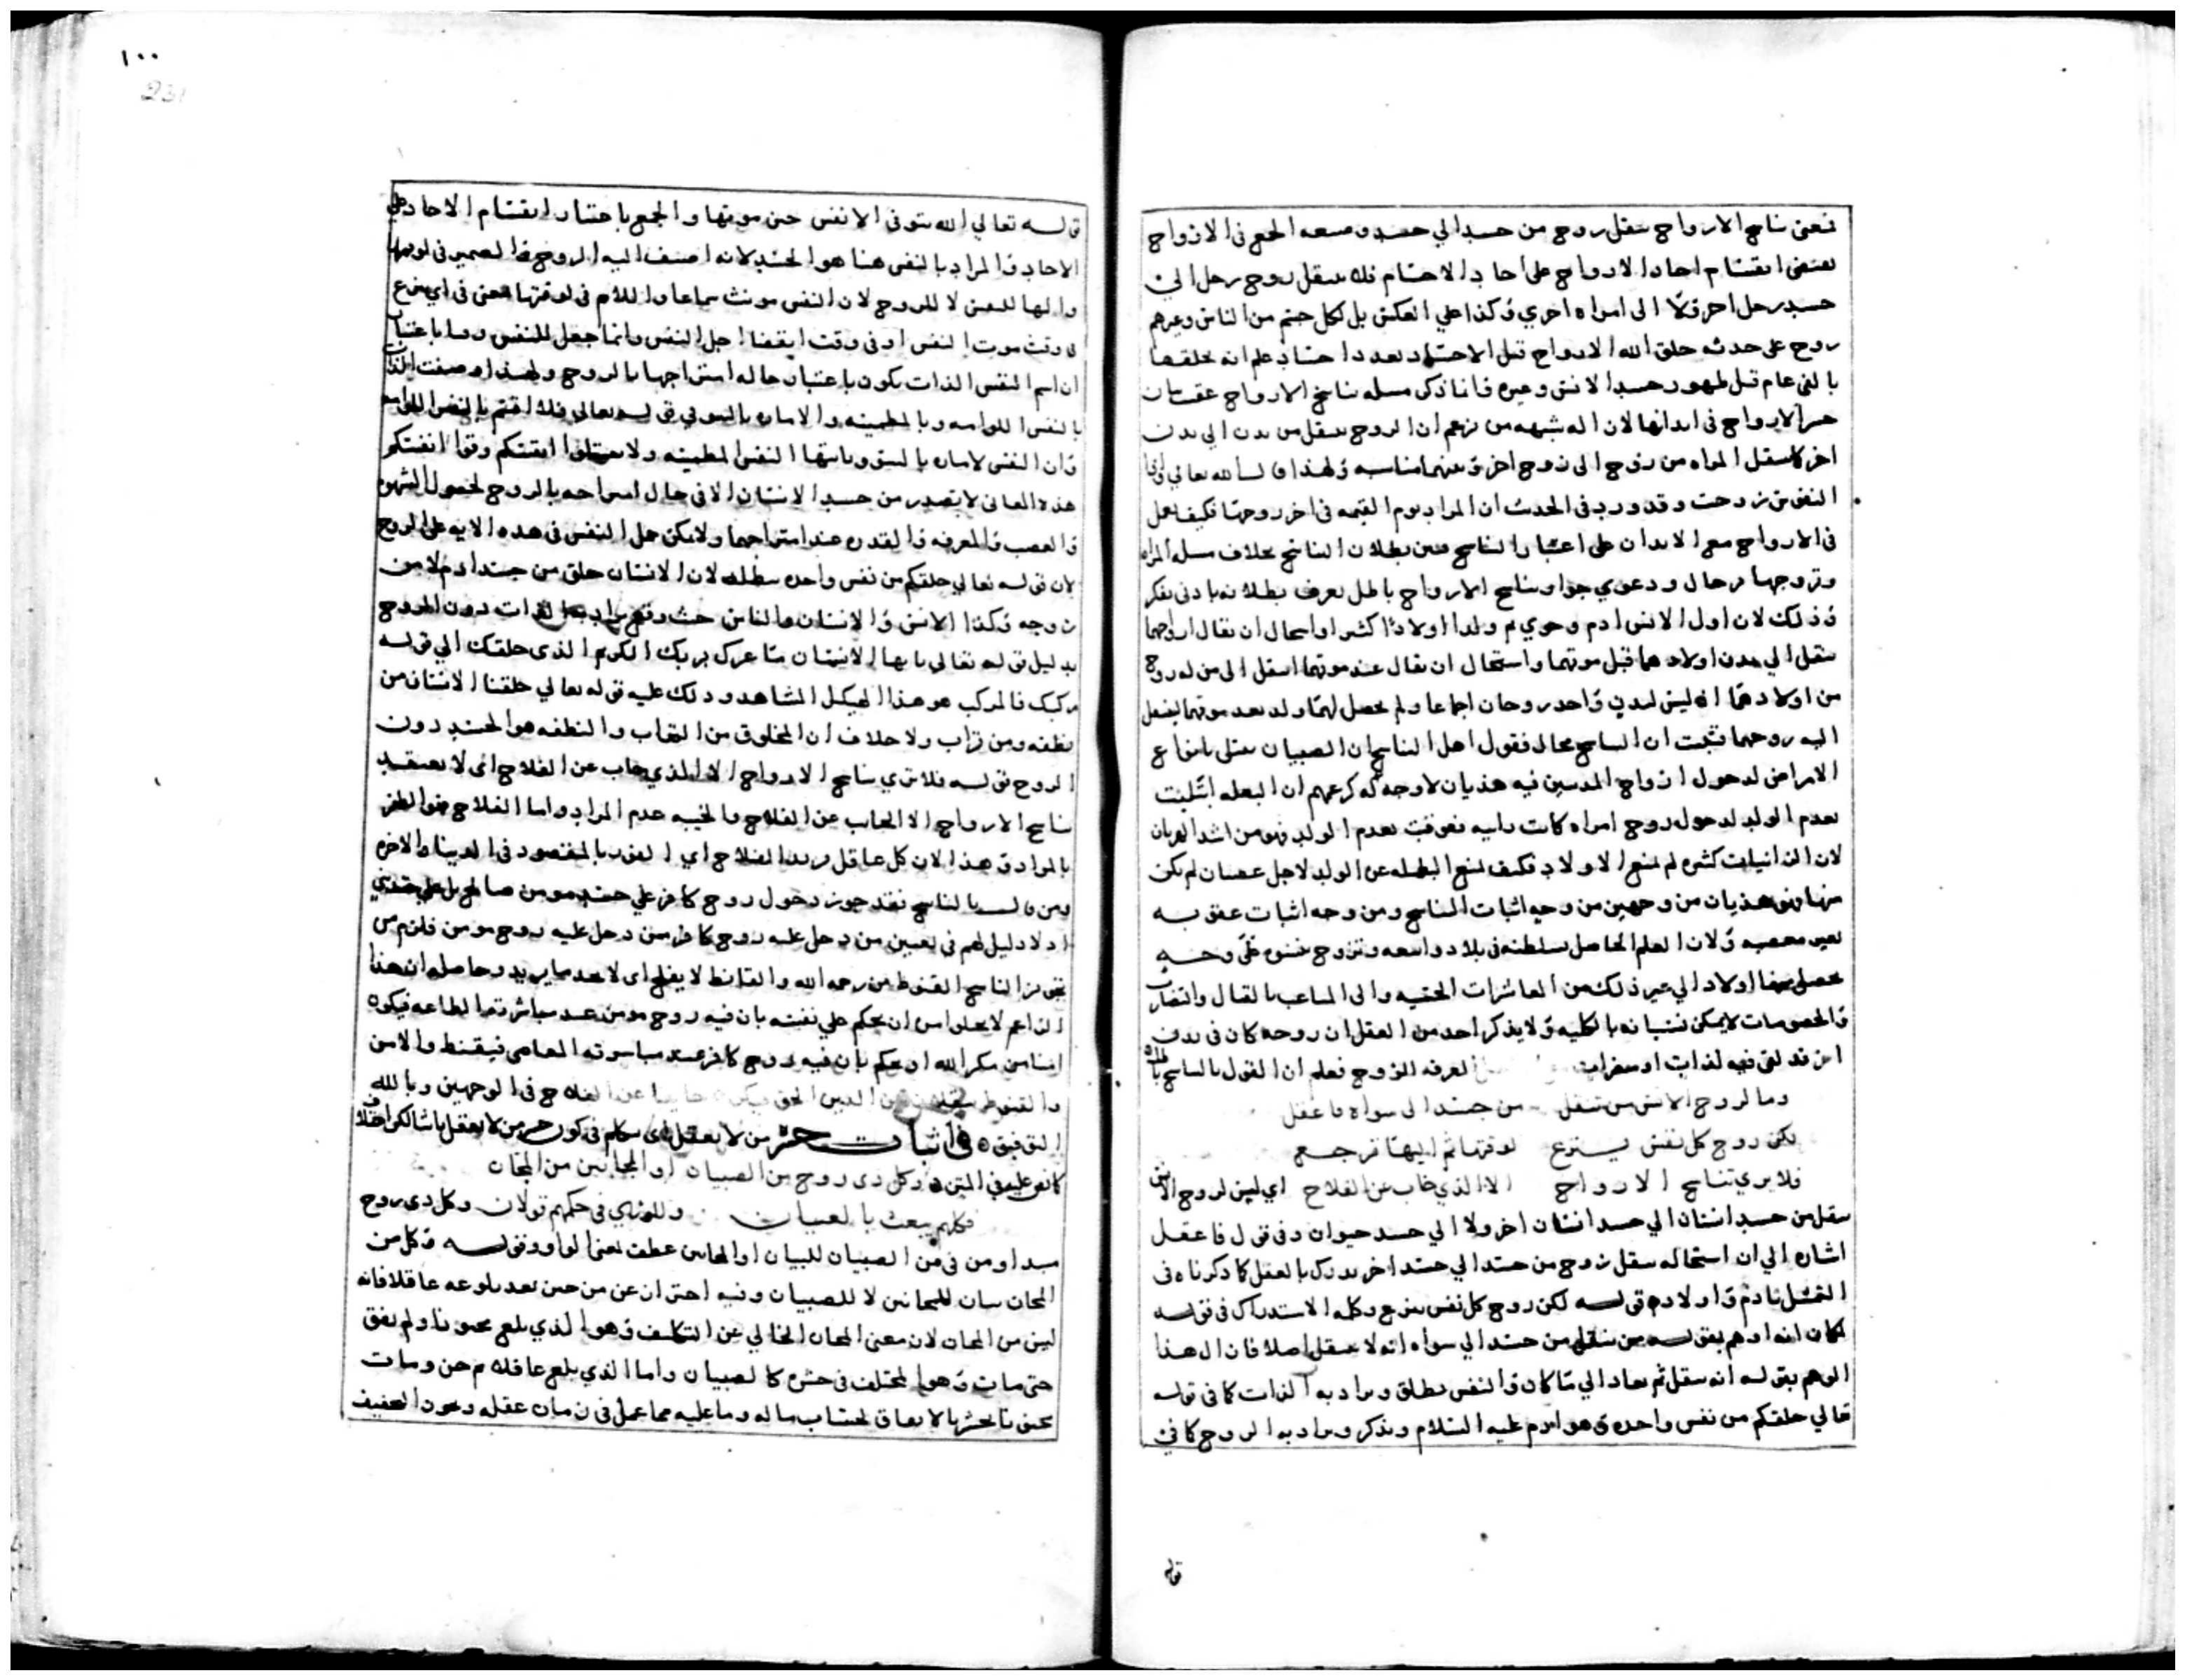 فمعنى تناسخ الارواح تنقل روح من جسد الي جسد وصيغه الجمع فى الارواح
تقتضى انقسام احاد الارواح على احاد الاجسام فلا تنتقل روح رجل الى
جسد رجل اخر ولا الى امراه اخرى وكذا على العكس بل لكل جسم من الناس وغيرهم
روح على حدته خلق الله الارواح قبل الاجساد بعدد اجساد علم انه يخلقها
بالفى عام قبل ظهور جسد الانس وغيره فانما ذكر مسله تناسخ الارواح عقب بيان
حشر الارواح فى ابدانها لان اله شبهه من زعم ان الروح تنتقل من بدن الي بدن
اخر كما تنتقل المراه من زوج الى زوج اخر وبينهما مناسبه ولهذا قال الله تعالي واذا
النفوس زوجت وقد ورد فى الحديث ان المراه يوم القيمه فى اخر زوجها فكيف يعمل
فى الارواح مع الابدان على اعتبار التناسخ فتبين بطلان التناسخ بخلاف مسله المراه
وتزوجها برجال ودعوي جواز تناسخ الارواح باطل يعرف بطلانه بادنى تفكر
وذلك لان اول الانس ادم وحوي ثم ولدا اولادا كثيرا واستحال ان يقال ارواحهما
تنتقل الي بدن اولادهما قبل موتهما واستحال ان يقال عند موتهما انتقل الى من له روح
من اولادهما اذ ليس لبدن واحد روحان اجماعا ولم يحصل لهما ولد بعد موتهما لينتقل
اليه روحهما فثبت ان التناسخ محال فقول اهل التناسخ ان الصبيان تبتلى بانواع
الامراض لدخول ارواح المذنبين فيه هذيان لا وجه له كزعمهم ان البعله ابتليت
بعدم الولد لدخول روح امراه كانت زانيه فعوقبت بعدم الولد فهو من اشد الهذيان
لان الزانيات كثيره لم تمنع الاولاد فكيف تمنع البطله عن الولد لاجل عصيان لم يكن
منها فهو هذيان من وجهين من وجه اثبات التناسخ ومن وجه اثبات عقوبه
بغير معصيه ولان العلم الحاصل بسلطنه فى بلاد واسعه وتزوج نسوه على وجه
يحصل منها اولاد الي غير ذلك من المعاشرات الحقيقيه والى المتاعب بالقتال والتضارب
والخصومات لا يمكن نسيانه بالكليه ولا يذكر احد من العقلا ان روحه كان فى بدن
اخر قد لقى فيه لذات او مضرات لعرفه الروح فعلم ان القول بالتناسخ باطل
وما لروح الانس من تنقل من جسد الى سواه فاعقل
لكن روح كل نفس ينزع لوقتها ثم اليها ترجع
فلا يرى تناسخ الارواح الا الذي خاب عن الفلاح اي ليس لروح الانس
تنقل من جسد انسان الي جسد انسان اخر ولا الي جسد حيوان وفى قول فاعقل
اشاره الي ان استحاله تنقل روح من جسد الي جسد اخر يدرك بالعقل كما ذكرناه فى
التمثيل بادم واولادم قوله لكن روح كل نفس ينزع وكلمه الاستدراك فى قوله
لكان انه اوهم بقوله من تنقل من جسد الي سواه انه لا ينتقل اصلا فازال هذا
الوهم بقوله انه تنقل ثم تعاد الي ما كان والنفس تطلق ويراد به الذات كما فى قوله
تعالي خلقكم من نفس واحده وهو ادم عليه السلام ويذكر ويراد به الروح كما فى
قوله
١٠٠
231
قوله تعالي الله يتوفى الانفس حين موتها والجمع باعتبار انقسام الاحاد على
الاحاد والمراد بالنفس هنا هو الجسد لانه اضيف اليه الروح فالضمير فى لوقتها
واليها للنفس لا للروح لان النفس مونث سماعا واللام فى لوقتها بمعنى فى اي ينزع
فى وقت موت النفس او فى وقت انقضا اجل النفس وانما جعل للنفس وقتا باعتبار
ان اسم النفس الذات يكون باعتبار حاله امتزاجها بالروح ولهذا وصفت الذات
بالنفس اللوامه وبالمطمينه والاماره بالسو فى قوله تعالي فلا اقسم بالنفس اللوامه
وان النفس لاماره بالسو ويايتها النفس المطمينه ولا تقتلوا انفسكم وقوا انفسكم
هذه المعانى لا يتصدر من جسد الانسان الا فى حال امتزاجه بالروح لحصول الشهوه
والغضب والمعرفه والقدره عند امتزاجهما ولا يمكن حمل النفس فى هذه الايه على الروح
لان قوله تعالي خلقكم من نفس واحده يبطله لان الانسان خلق من جسد ادم لا من
روحه وكذا الانس والانسان والناس حيث وقع يراد بها الذات دون الروح
بدليل قوله تعالي يايها الانسان ما غرك بربك الكريم الذى خلقك الي قوله
ركبك فالمركب هو هذا الهيكل المشاهد ودلك عليه قوله تعالي خلقنا الانسان من
نطفه ومن تراب ولا خلاف ان المخلوق من التراب والنطفه هو الجسد دون
الروح قوله فلا ترى تناسخ الارواح الا الذي خاب عن الفلاح اى لا يعتقد
تناسخ الارواح الا الخايب عن الفلاح والخيبه عدم المراد واما الفلاح فهو الظفر
بالمراد وهذا لان كل عاقل يريد الفلاح اي الفوز بالمقصود فى الدنيا والاخره
ومن قال بالتناسخ فقد جوز دخول روح كافر على جسد مومن صالح
اذ لا دليل لهم فى تعيين من دخل عليه روح كافر ممن دخل عليه روح مومن فلزم من
تجويز التناسخ القنوط من رحمه الله والقانط لا يفلح اى لا يجد ما يريد وحاصله ان هذا
الزاعم لا يخلوا من ان يحكم علي نفسه بان فيه روح مومن عند مباشرته الطاعه فيكون
امنا من مكر الله او يحكم بان فيه روح كافر عند مباشرته المعاصى فيقنط والامن
والقنوط ينقلان عن الدين الحق فيكون خايبا عن الفلاح فى الوجهين وبالله
التوفيق فى اثبات حشر من لا يعقل اى كلام فى كون حشر من لا يعقل باشا لكن اختلاف
كانص عليه في المتن وكل ذى روح من الصبيان او المجانين من المجان
فكلهم يبعث بالعيان وللورى في حكمهم قولان وكل ذى روح
مبتدا ومن فى من الصبيان للبيان او المجانين عطف بمعنى الواو وقوله وكل من
المجان بيان للمجانين لا للصبيان وفيه احتراز عن من جن بعد بلوغه عاقلا فانه
ليس من المجان لان معنى المجان الخالي عن التكليف وهو الذي بلغ مجنونا ولم يفق
حتى مات وهو المختلف فى حشره كالصبيان واما الذي بلغ عاقلا ثم جن ومات
مجنونا يحشر بالاتفاق لحساب ماله وما عليه مما عمل فى زمان عقله ويجوز التخفيف